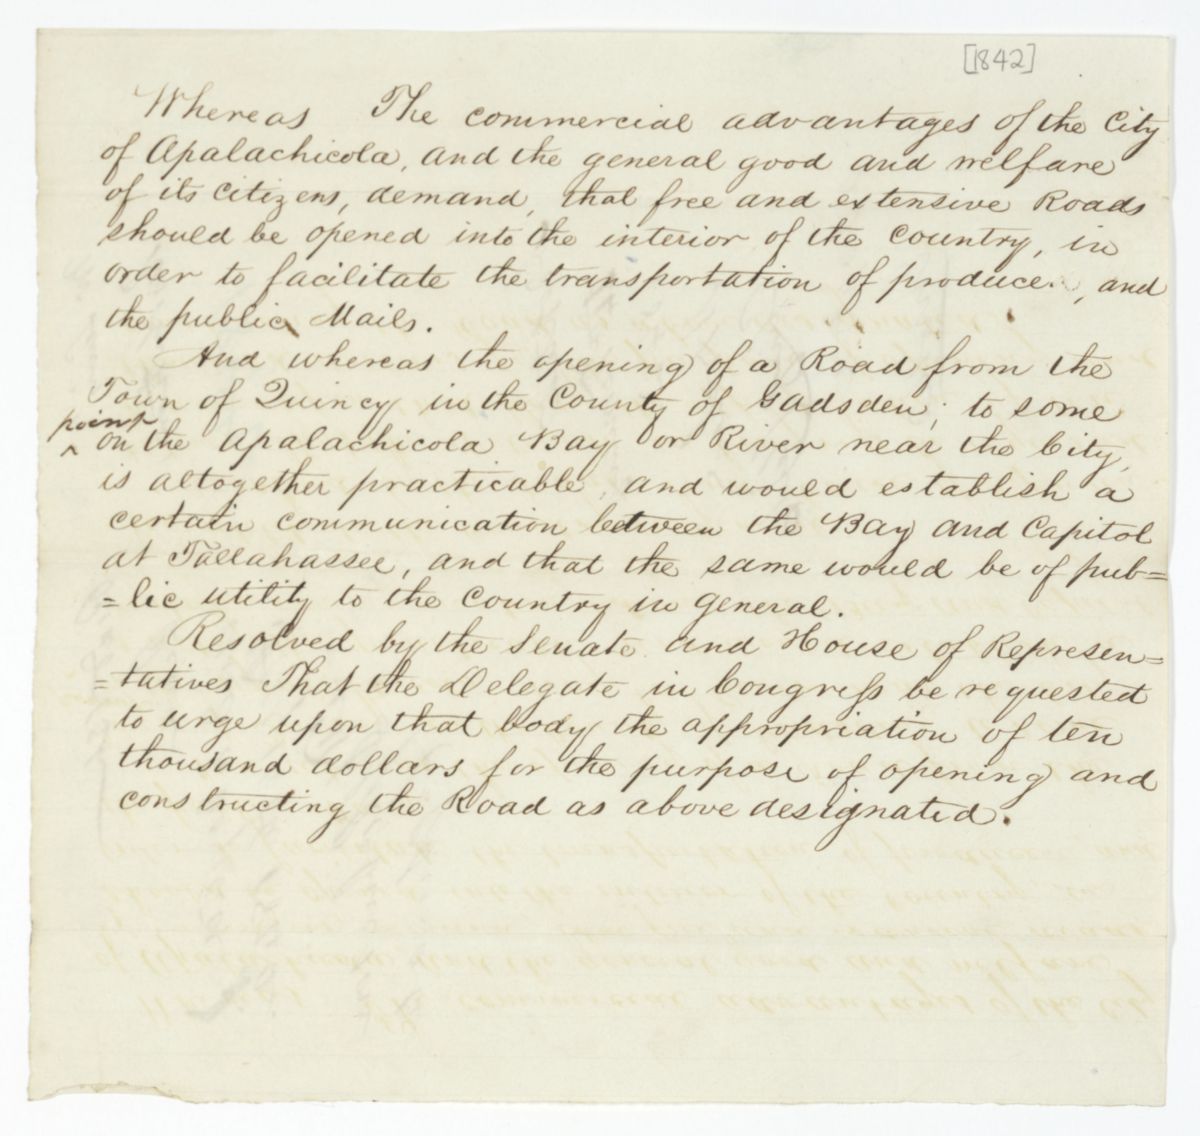 [1842]
Whereas The commercial advantages of the City
of Apalachicola, and the general good and welfare
of its Citizens, demand, that free and extensive Roads
should be opened into the interior of the Country, in
order to facilitate the transportation of produce, and
the public Mails.
And whereas the opening of a Road from the
Town of Quincy in the County of Gadsden; to some
point
^ on the Apalachicola Bay or River near the City,
is altogether practicable, and would establish a
certain communication between the Bay and Capitol
at Tallahassee, and that the same would be of pub=
=lic utility to the Country in general.
Resolved by the Senate and House of Represen=
=tatives That the Delegate in Congress be requested
to urge upon that body the appropriation of ten
thousand dollars for the purpose of opening and
constructing the Road as above designated.